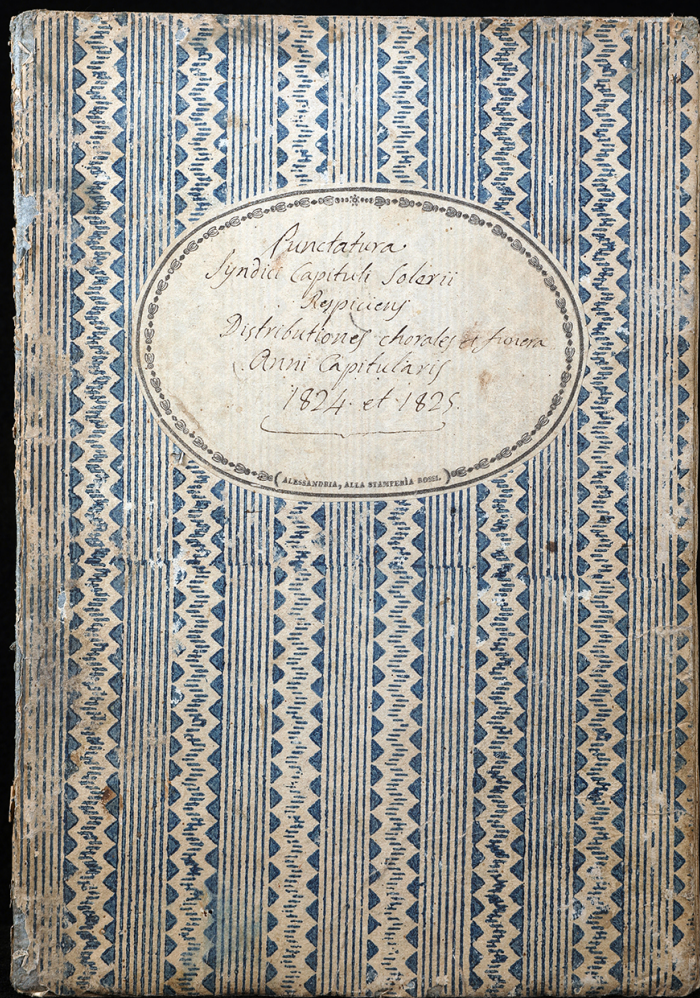 Punctatura
Syndici Capituli Solerii
Respiciens
Distributiones chorales et funera
Anni Capitularis
1824. et 1825.
(ALESSANDRIA, ALLA STAMPERÌA ROSSI.)